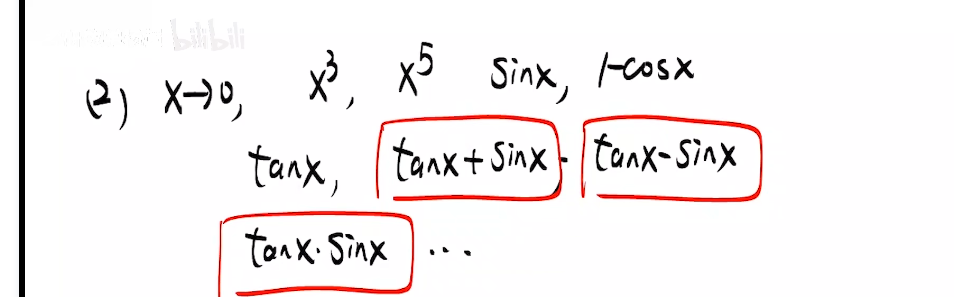 bilibili
(2) x→0, x³, x⁵ sinx, 1-cosx
tanx, tanx+sinx · tanx-sinx
tanx·sinx ...